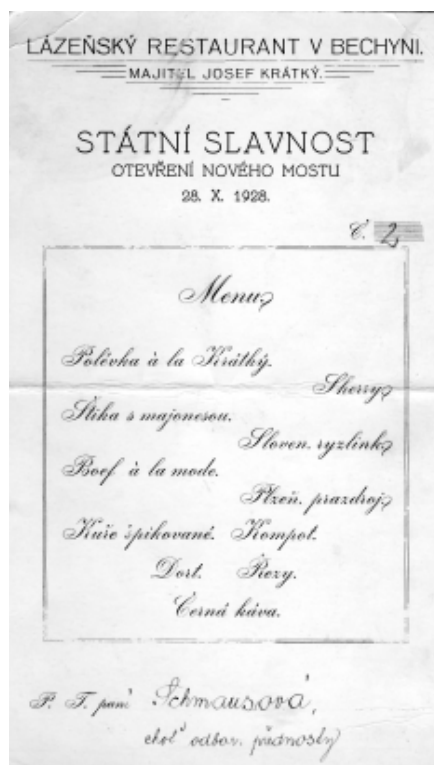 LÁZEŇSKÝ RESTAURANT V BECHYNI.
MAJITEL JOSEF KRÁTKÝ.
STÁTNÍ SLAVNOST
OTEVŘENÍ NOVÉHO MOSTU
28. X. 1928.
Č. 2
Menu
Polévka à la Krátký.
Sherry
Štika s majonesou.
Sloven. ryzlink
Boef à la mode.
Plzeň. prazdroj
Kuře špikované. Kompot.
Dort. Řezy.
Černá káva.
P. T. paní Schmausová,
choť odbor. přednosty